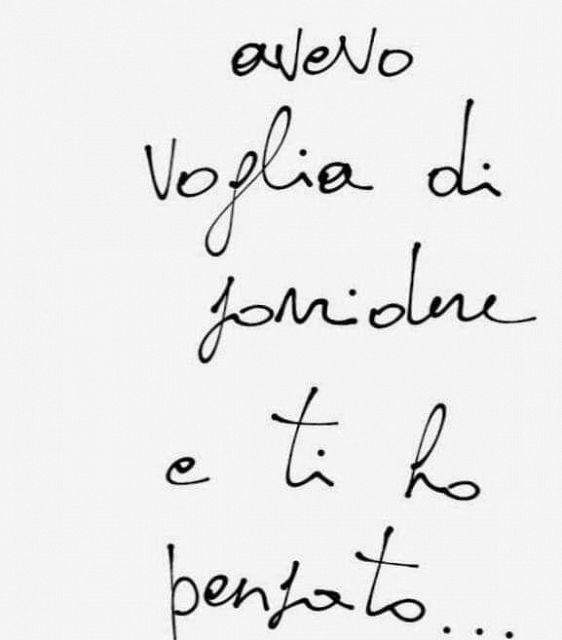 avevo
voglia di
sorridere
e ti ho
pensato...